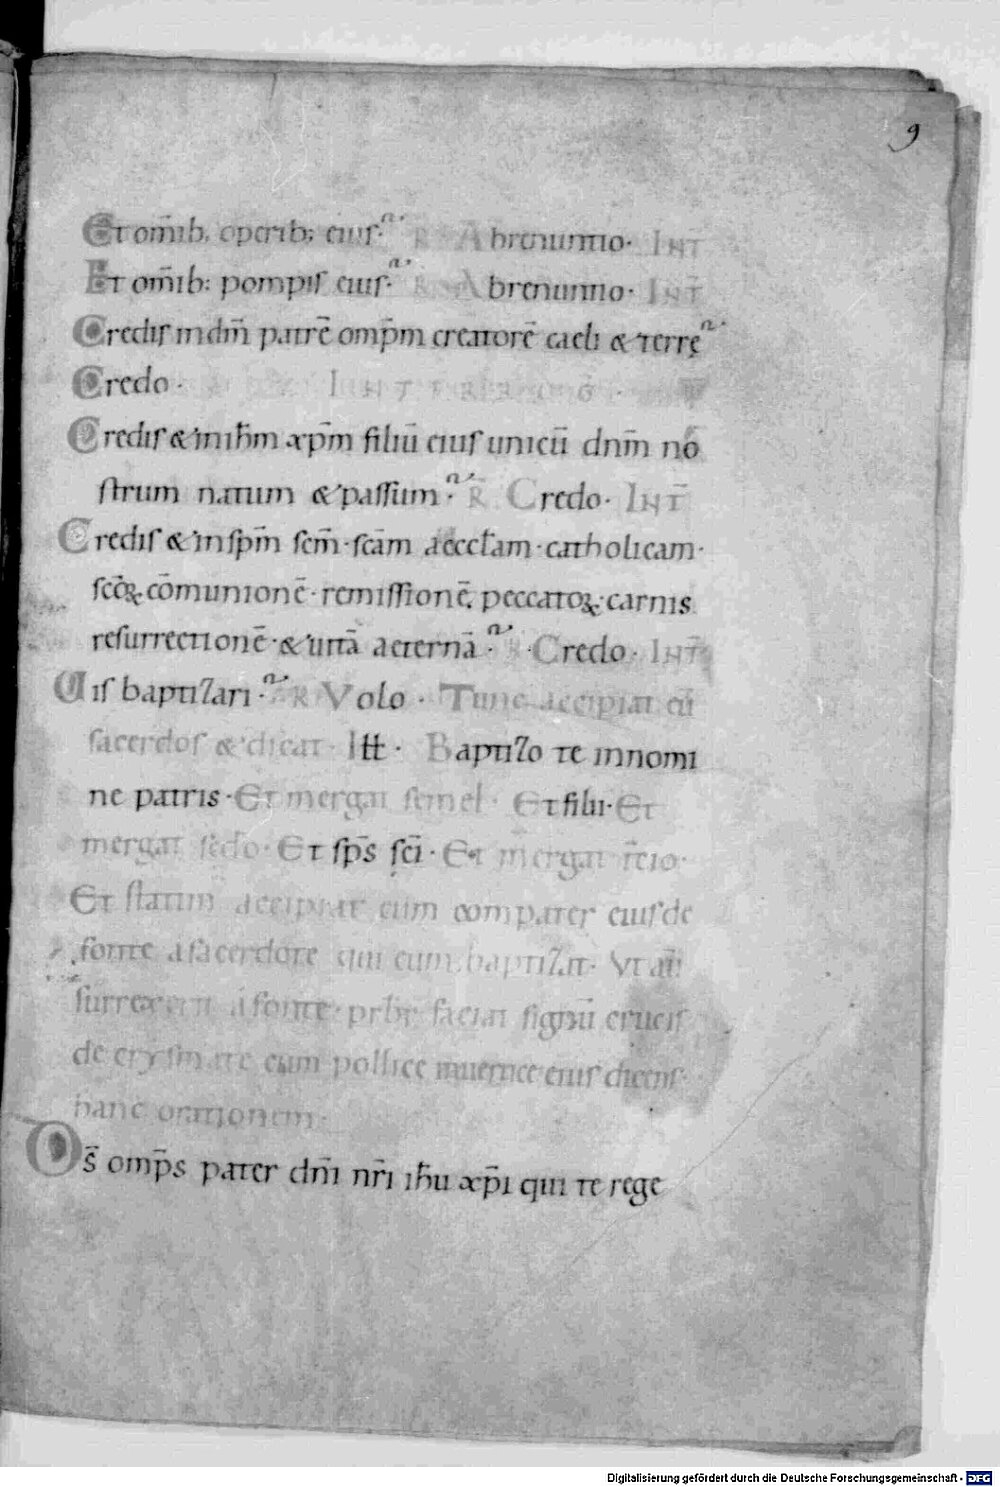 9
Et om̄ib; operib; eius· R Abrenuntio· INT̄
Et om̄ib: pompis eius· R Abrenuntio· INT̄
Credis in dm̄ patrē omp̄m creatorē caeli & terrę
Credo· INTERROG̅·
Credis & in ih̄m xp̄m filiū eius unicū dnm̄ no
strum natum & passum· R̄ Credo· INT̄
Credis & in sp̄m sc̄m· sc̄am aeccl̄am· catholicam·
sc̄oꝝ cōmunionē· remissionē peccatoꝝ· carnis
resurrectionē· & uitā aeternā· R Credo· INT̄
Uis baptizari· R Volo· Tunc accipiat eū
sacerdos & dicat· Iłł· Baptizo te in nomi
ne patris· Et mergat semel· Et filii· Et
mergat sc̄do· Et sp̄s sc̄i· Et mergat t̄cio·
Et statim accipiat eum compater eius de
fonte a sacerdote qui eum baptizat· Vt aū
surrexerit a fonte· prb̄r faciat signū crucis
de crysmate cum pollice in uertice eius dicens·
hanc orationem·
Ds̄ omp̄s pater dn̄i nr̄i ih̄u xp̄i qui te rege
Digitalisierung gefördert durch die Deutsche Forschungsgemeinschaft - DFG